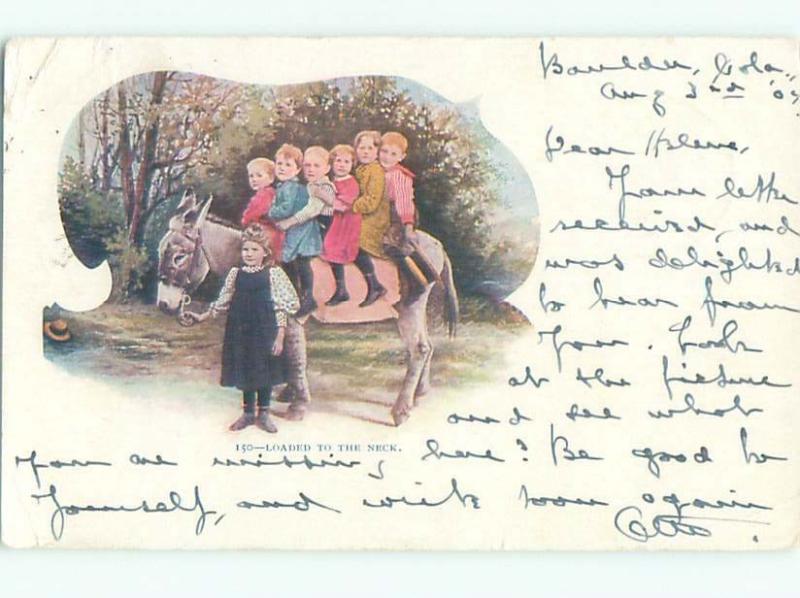 Boulder, Colo.,
Aug 3rd '07
Dear Helene,
Your letter
received, and
was delighted
to hear from
you. Look
at the picture
and see what
150—LOADED TO THE NECK.
you are missing here? Be good to
yourself, and write soon again
Otto.